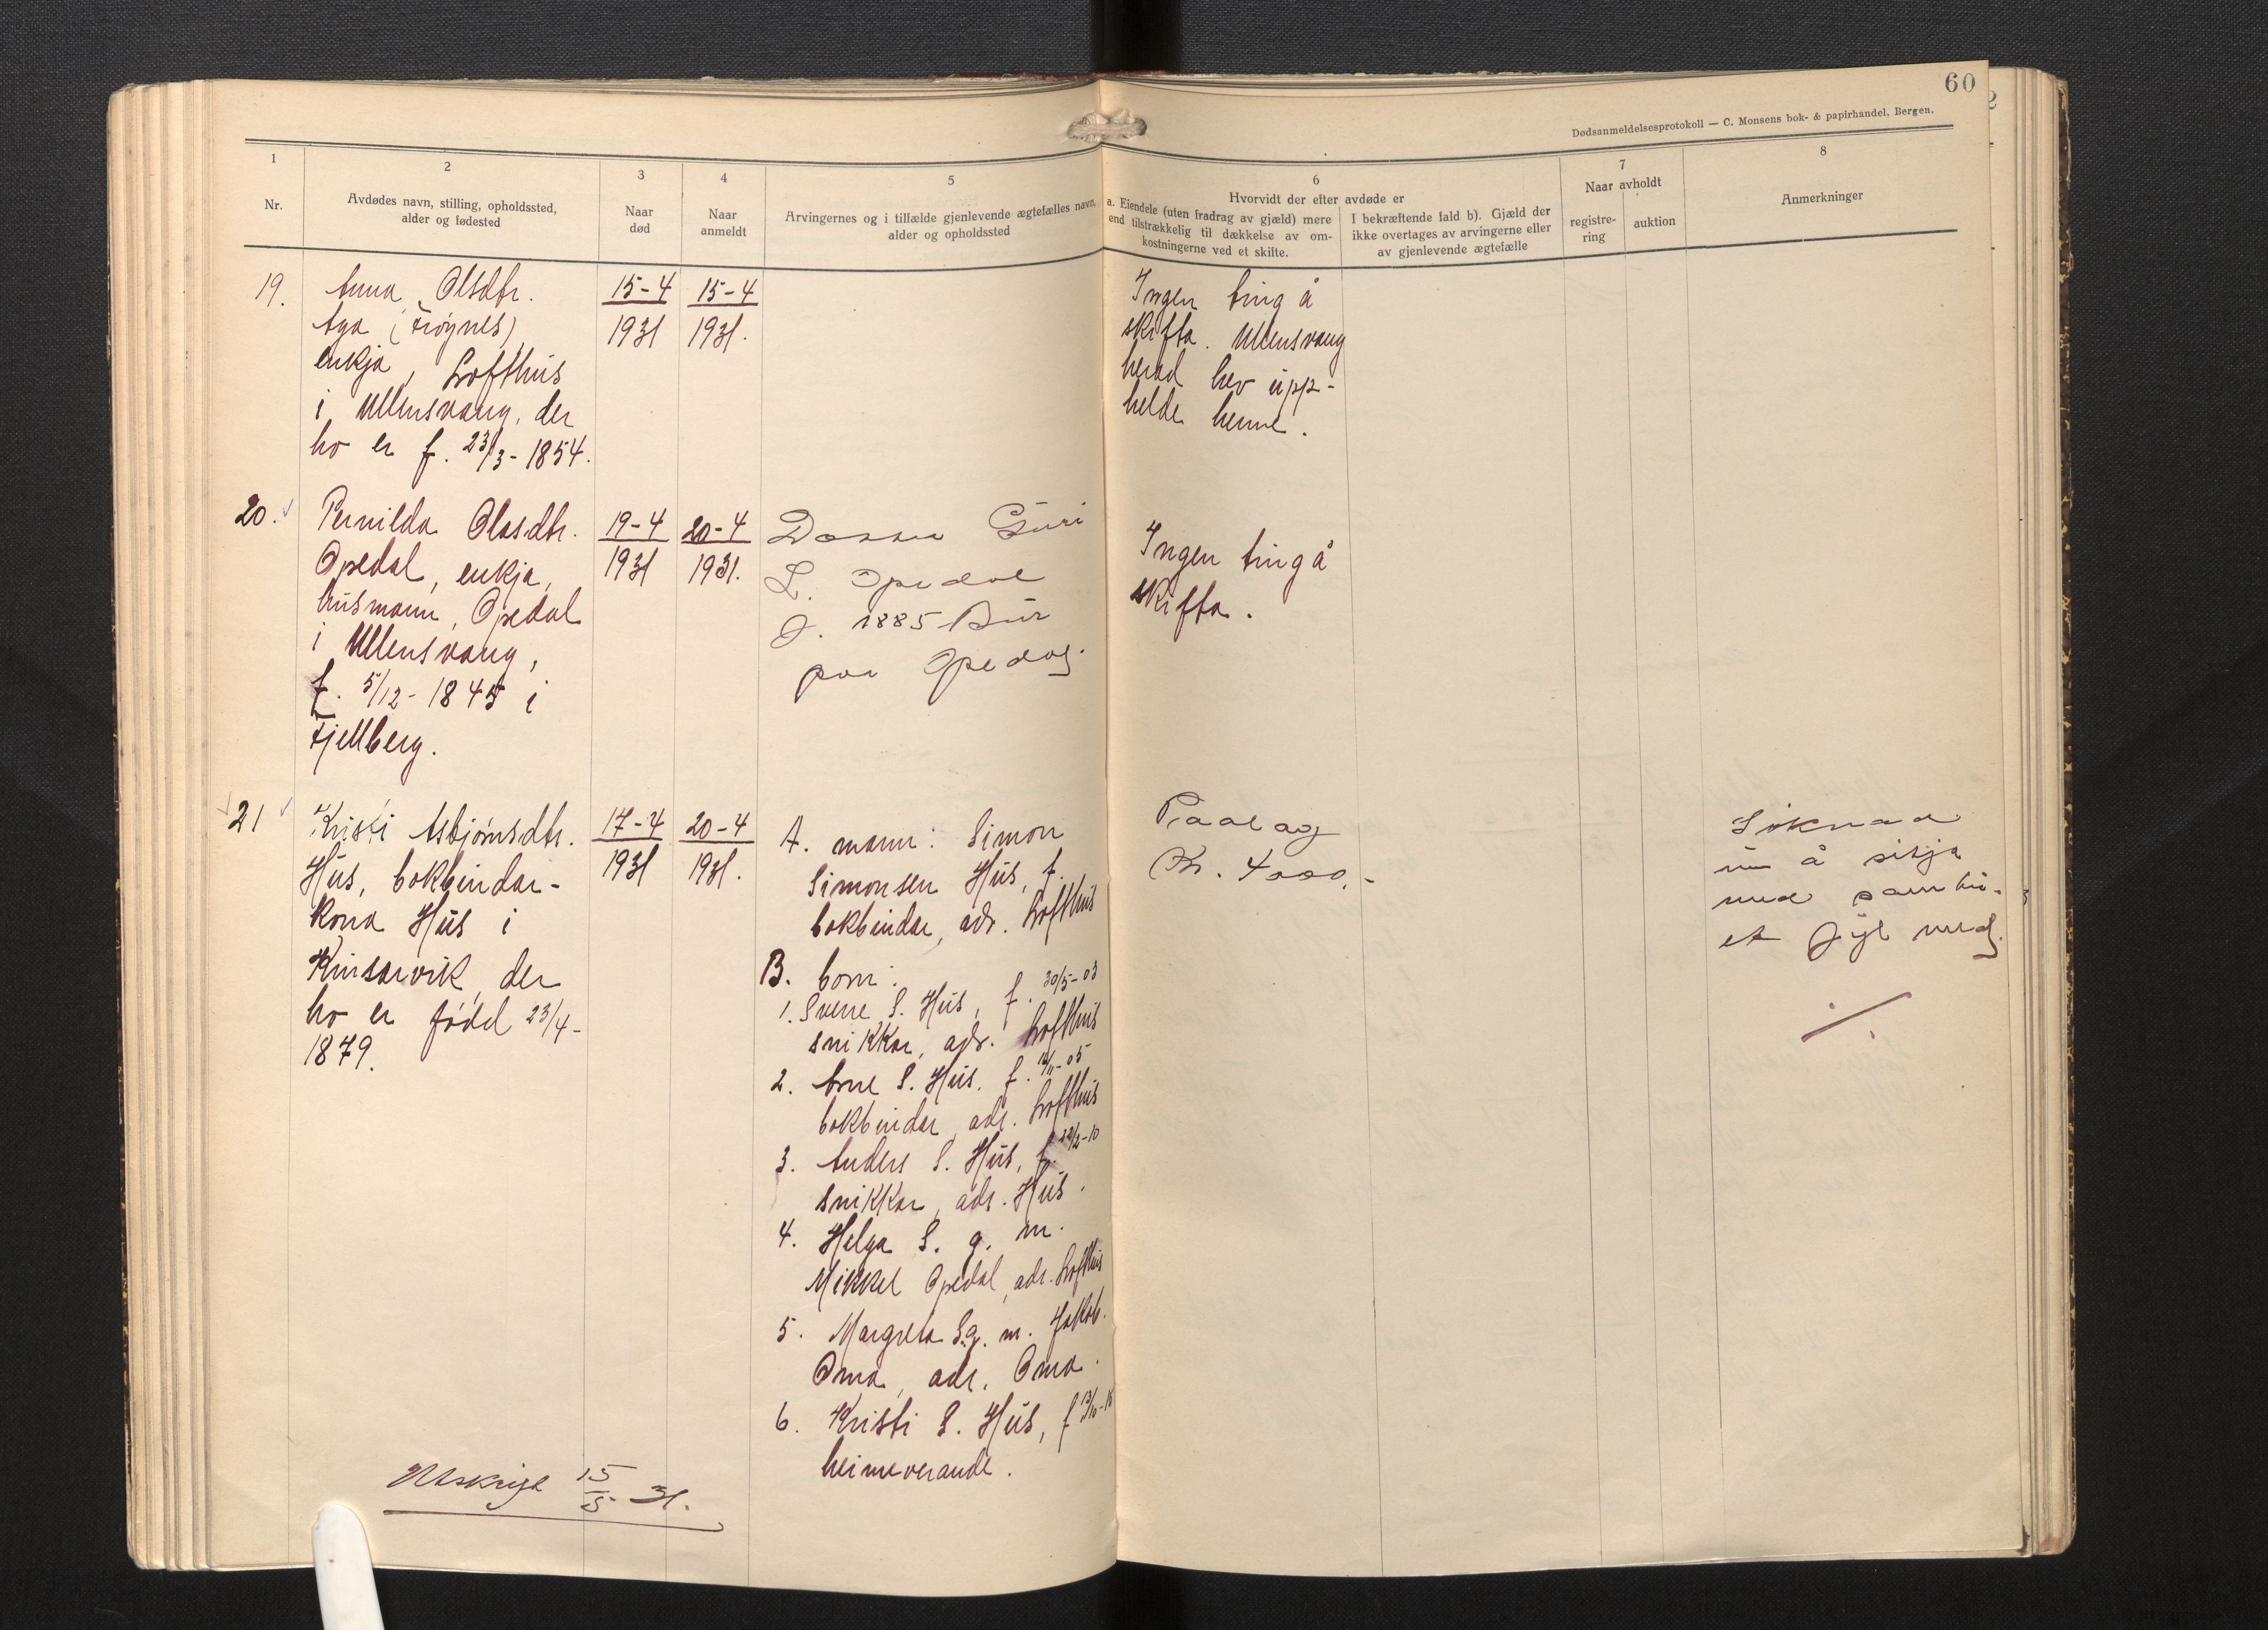 60
Dødsanmeldelsesprotokoll — C. Monsens bok- & papirhandel, Bergen.
1
Nr.
2
Avdødes navn, stilling, opholdssted,
alder og fødested
3
Naar
død
4
Naar
anmeldt
5
Arvingernes og i tilfælde gjenlevende ægtefælles navn,
alder og opholdssted
6
Hvorvidt der efter avdøde er
a. Eiendele (uten fradrag av gjæld) mere
end tilstrækkelig til dækkelse av om-
kostningerne ved et skifte.
I bekræftende fald b). Gjæld der
ikke overtages av arvingerne eller
av gjenlevende ægtefælle
7
Naar avholdt
registre-
ring
auktion
8
Anmerkninger
19.
Anna Olsdtr.
Aga (Frøynes)
enkja, Lofthus
i Ullensvang, der
ho er f. 23/3-1854.
15-4
1931
15-4
1931.
Ingen ting å
skifta. Ullensvang
herad hev upp-
helde henne.
20.
Pernilda Olasdtr.
Opedal, enkja,
husmann, Opedal
i Ullensvang,
f. 5/12-1845 i
Fjellberg.
19-4
1931
20-4
1931.
Guri
L. Opedal
f. 1885 Bur
paa Opedal.
Ingen ting å
skifta.
21
Kristi Asbjørnsdtr.
Hus, bokbindar-
kona Hus i
Kinsarvik, der
ho er fødd 23/4-
1879.
17-4
1931
20-4
1931.
A. mann: Simon
Simonsen Hus, f.
bokbindar, adr. Lofthus
B. born:
1. Sverre S. Hus, f. 30/5-03
snikkar, adr. Lofthus
2. Arne S. Hus. f. -05
bokbindar, adr. Lofthus
3. Anders S. Hus, f. -10
snikkar, adr. Hus.
4. Helga S. g. m.
Mikkel Opedal, adr. Lofthus
5. Margreta S. g. m. Jakob.
Oma, adr. Oma.
6. Kristi S. Hus, f
heimeverande.
Kr. 4000.-
Søknad
um å sitja
med
et fylg med.
Utskrift 15/5 31.